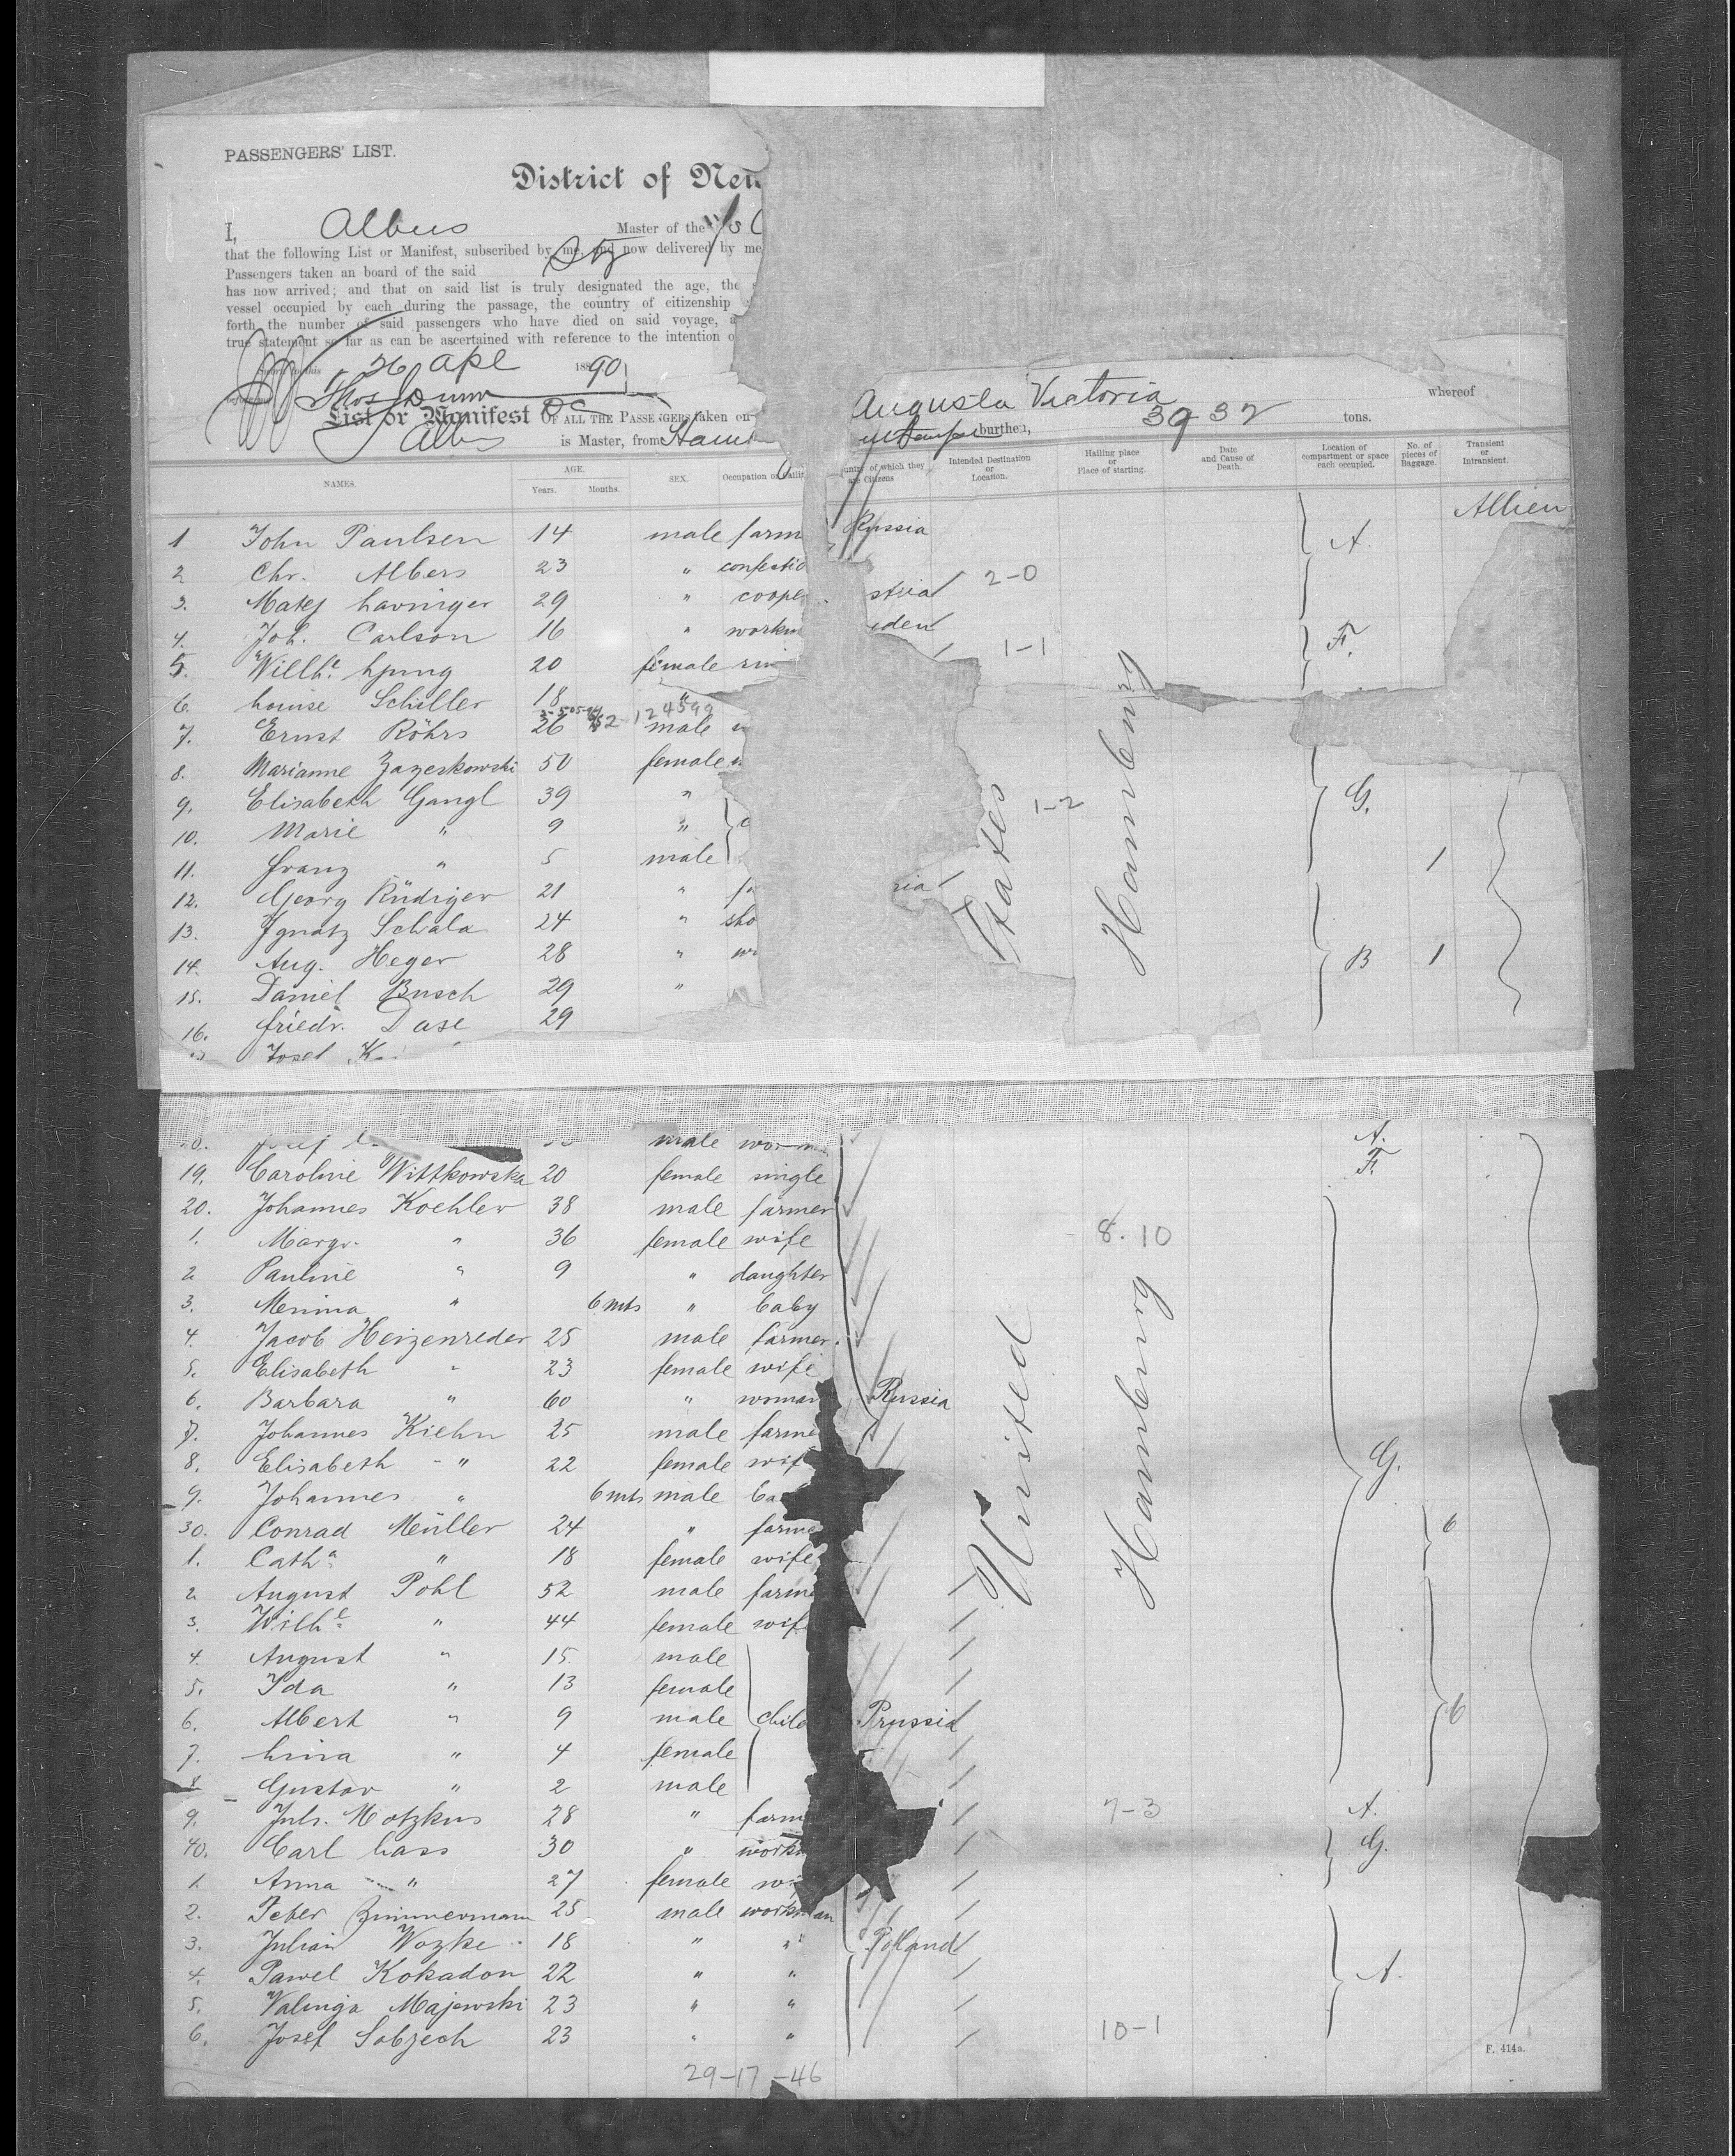 PASSENGERS' LIST.
District of New
I, Albers Master of the
that the following List or Manifest, subscribed by me, and now delivered by me
Passengers taken an board of the said
has now arrived; and that on said list is truly designated the age, the
vessel occupied by each during the passage, the country of citizenship
forth the number of said passengers who have died on said voyage, a
true statement so far as can be ascertained with reference to the intention o
26 Apl 1890
Thos Dunn
Augusta Victoria whereof
List or Manifest OF ALL THE PASSENGERS taken on 3937 tons.
Albers is Master, from burthen,
NAMES. AGE. Years. Months. SEX. Occupation or Country of which they are Citizens Intended Destination or Location. Hailing place or Place of starting. Date and Cause of Death. Location of compartment or space each occupied. No. of pieces of Baggage. Transient or Intransient.
1 John Paulsen 14 male farm Russia A.
2 Chr. Albers 23 " 2-0
3. Matej 29 " coope stria
4. Joh. Carlson 16 " workm eden F.
5. 20 female 1-1
6. Louise Schiller 18 "
7. Ernst Röhrs 26 male
8. Marianne 50 female
9. Elisabeth Gangl 39 " 1-2 G.
10. Marie " 9 "
11. Franz " 5 male 1
12. Georg Rüdiger 21 " ria
13. Ignatz Schala 24 " sho
14. Aug. Heger 28 " B 1
15. Daniel Busch 29 "
16. Friedr. Dase 29
Josef
States
Hamburg
male A.
19. Caroline Wittkowska 20 female single F.
20. Johannes Koehler 38 male farmer
1. Margr. " 36 female wife 8.10
2 Pauline " 9 " daughter
3. Menina " 6 mts " baby
4. Jacob Heizenreder 25 male farmer
5. Elisabeth " 23 female wife
6. Barbara " 60 " woman Russia
7. Johannes Kiehn 25 male farme
8. Elisabeth " 22 female wif G.
9. Johannes " 6 mts male ba
30. Conrad Müller 24 " farme 6
1. Catha " 18 female wife
2 August Pohl 52 male farme
3. Wilhe " 44 female wif
4. August " 15. male
5. Ida " 13 female
6. Albert " 9 male child Prussia 6
7. " 4 female
8 Gustav " 2 male
9. Juls. Motzkus 28 " farm 7-3 A.
40. Carl Lass 30 " workm G.
1. Anna " 27 female wi
2. Peter Zimmermann 25 male workman
3. Julian Wozke 18 " " Poland
4. Pawel Kokadon 22 " " A.
5. Majewski 23 " "
6. Josef Sobzech 23 " " 10-1
United
Hamburg
F. 414a.
29-17-46